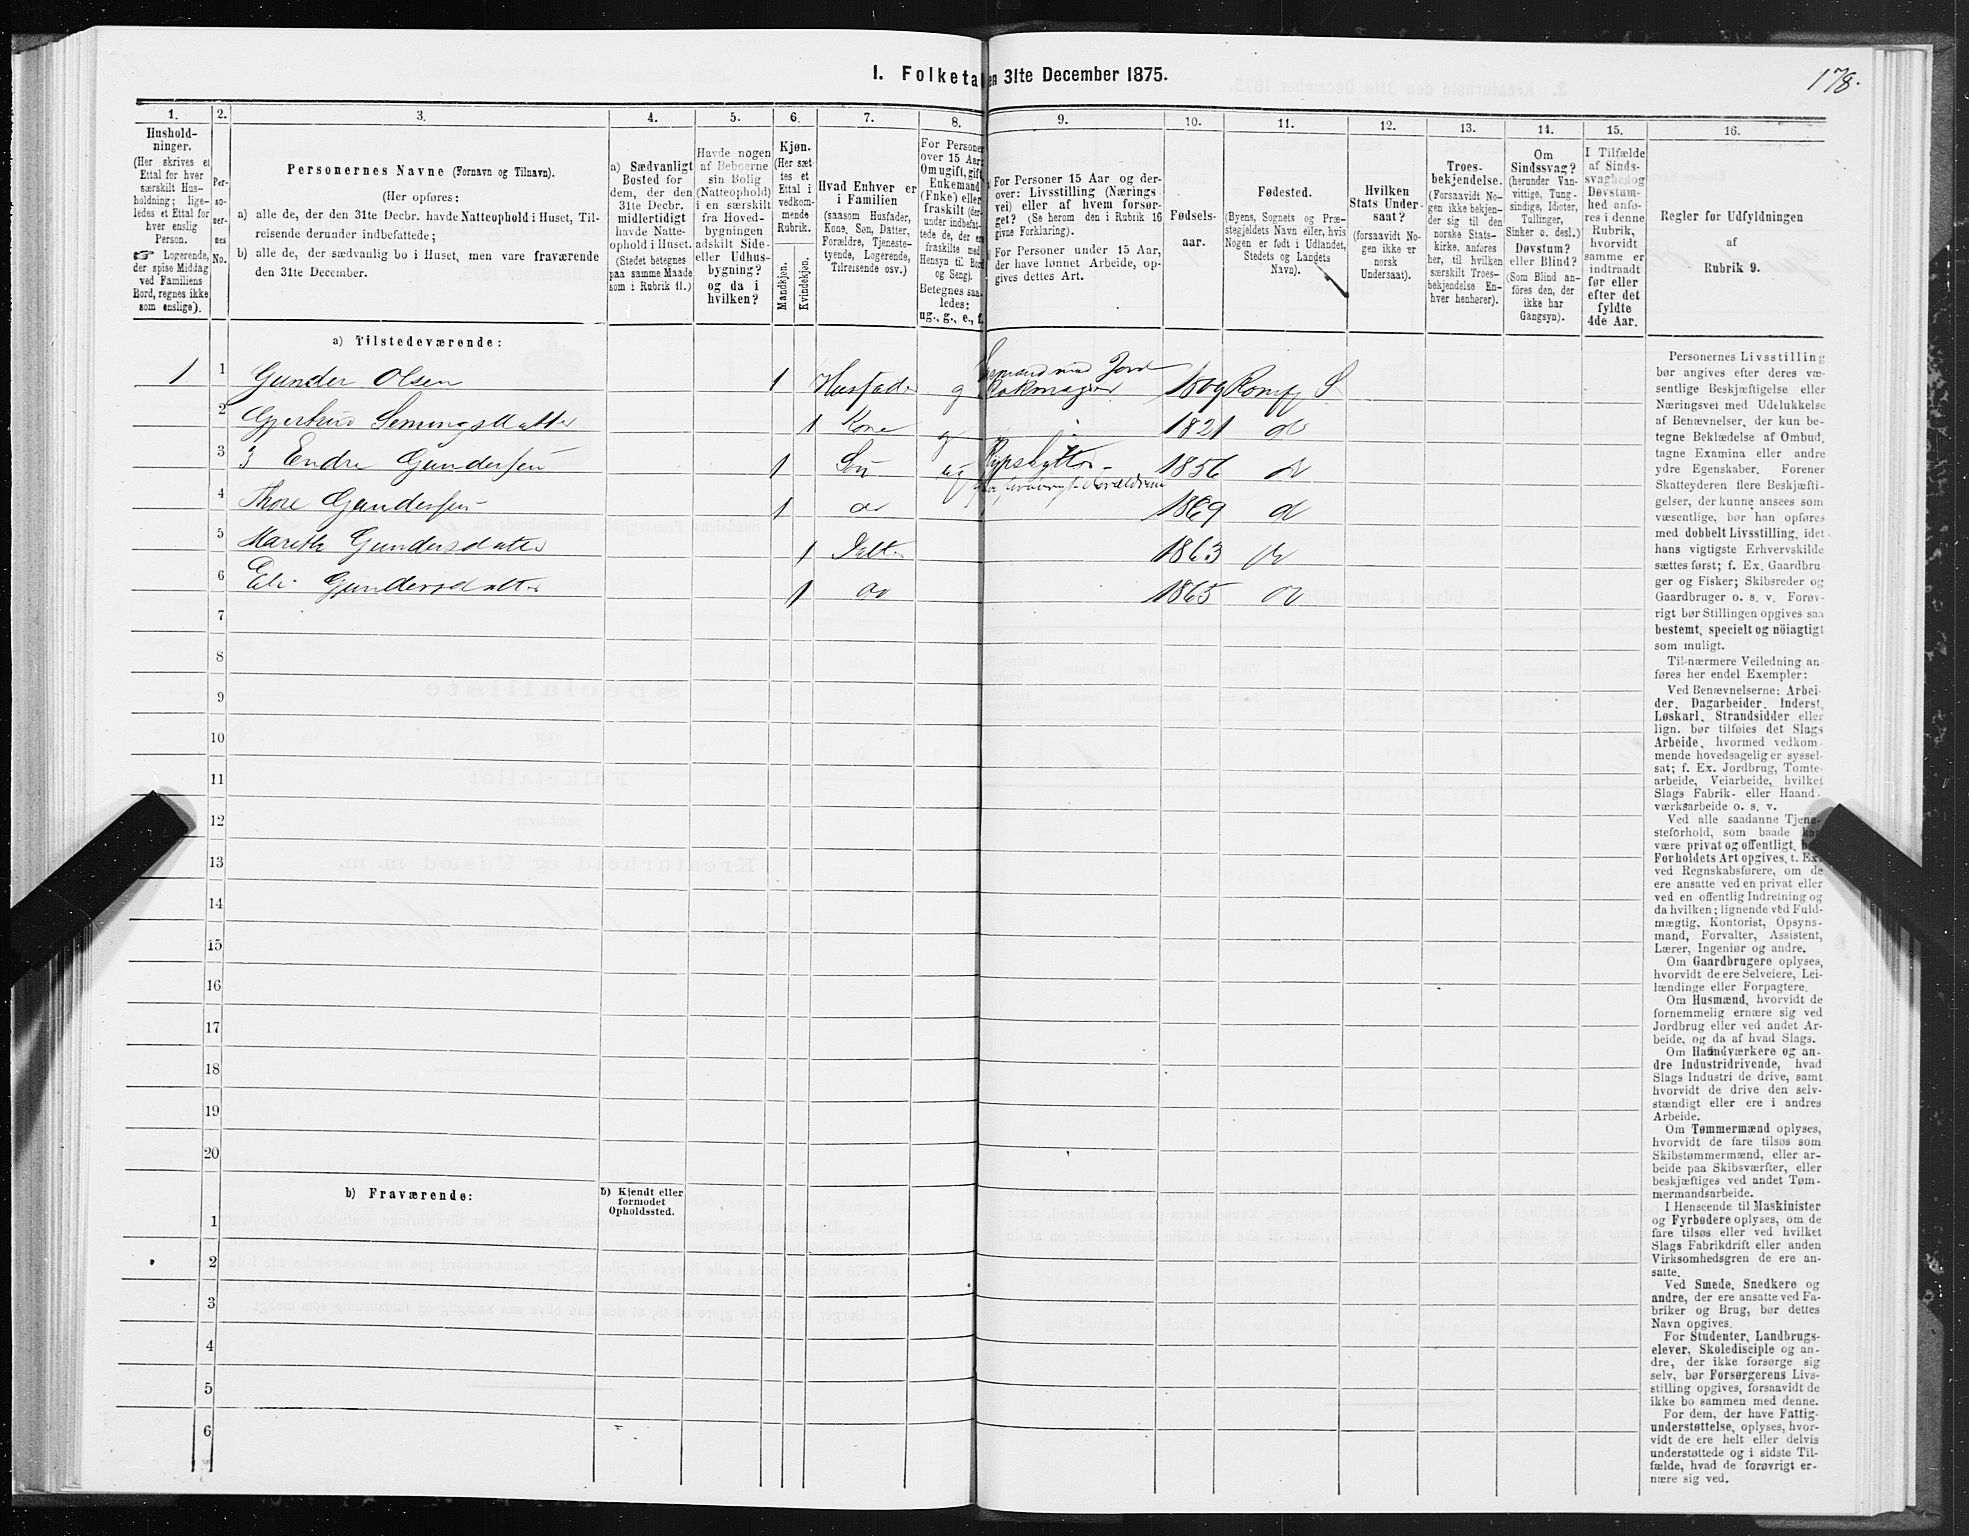 178.
I. Folketal
en 31te December 1875.
1.
2.
3.
4.
5.
6.
7.
8.
9.
10.
11.
12.
13.
14.
15.
16.
Hushold-
ninger.
(Her skrives et
Ettal for hver
særskilt Hus-
holdning; lige-
ledes et Ettal for
hver enslig
Person.
☞ Logerende,
der spise Middag
ved Familiens
Bord, regnes ikke
som enslige).
Per-
so-
ner-
nes
No.
Personernes Navne (Fornavn og Tilnavn).
(Her opføres:
a) alle de, der den 31te Decbr. havde Natteophold i Huset, Til-
reisende derunder indbefattede;
b) alle de, der sædvanlig bo i Huset, men vare fraværende
den 31te December.
a) Sædvanligt
Bosted for
dem, der den
31te Decbr.
midlertidigt
havde Natte-
ophold i Huset.
(Stedet betegnes
paa samme Maade
som i Rubrik 11.)
Havde nogen
af Beboerne
sin Bolig
(Natteophold)
i en særskilt
fra Hoved-
bygningen
adskilt Side-
eller Udhus-
bygning?
og da i
hvilken?
Kjøn.
(Her sæt-
tes et
Ettal i
vedkom-
mende
Rubrik.
Mandkjøn.
Kvindekjøn.
Hvad Enhver er
i Familien
(saasom Husfader,
Kone, Søn, Datter,
Forældre, Tjeneste-
tyende, Logerende,
Tilreisende osv.)
For Personer
over 15 Aar:
Om ugift, gift,
Enkemand
(Enke) eller
fraskilt (der-
under indbefat-
tede de, der ere
fraskilte med
Hensyn til Bord
og Seng).
Betegnes saa-
ledes:
ug., g., e., f.
For Personer 15 Aar og der-
over: Livsstilling (Nærings-
vei) eller af hvem forsør-
get? (Se herom den i Rubrik 16
givne Forklaring).
For Personer under 15 Aar,
der have lønnet Arbeide, op-
gives dettes Art.
Fødsels-
aar.
Fødested.
(Byens, Sognets og Præ-
stegjeldets Navn eller, hvis
Nogen er født i Udlandet,
Stedets og Landets
Navn).
Hvilken
Stats Under-
saat?
(forsaavidt No-
gen ikke er
norsk
Undersaat).
Troes-
bekjendelse.
(Forsaavidt No-
gen ikke bekjen-
der sig til den
norske Stats-
kirke, anføres
her, til hvilken
særskilt Troes-
bekjendelse En-
hver henhører).
Om
Sindssvag?
(herunder Van-
vittige, Tung-
sindige, Idioter,
Tullinger,
Sinker o. desl.)
Døvstum?
eller Blind?
(Som Blind an-
føres den, der
ikke har
Gangsyn).
I Tilfælde
af Sinds-
svaghed og
Døvstum-
hed anfø-
res i denne
Rubrik,
hvorvidt
samme er
indtraadt
før eller
efter det
fyldte
4de Aar.
Regler for Udfyldningen
af
Rubrik 9.
a) Tilstedeværende:
1 1 Gunder Olsen 1 Husfader g Husmand med Jord 1809
2 Gjertrud Semingsdatter 1 Kone g 1821 do
3 3 Endre Gundersen 1 Søn ug 1856 do
4 Thore Gundersen 1 do 1869 do
5 Marith Gundersdatter 1 Datter 1863 do
6 Eli Gundersdatter 1 do 1865 do
7
8
9
10
11
12
13
14
15
16
17
18
19
20
b) Fraværende:
b) Kjendt eller
formodet
Opholdssted.
1
2
3
4
5
6
Personernes Livsstilling
bør angives efter deres væ-
sentlige Beskjæftigelse eller
Næringsvei med Udelukkelse
af Benævnelser, der kun be-
tegne Beklædelse af Ombud,
tagne Examina eller andre
ydre Egenskaber. Forener
Skatteyderen flere Beskjæfti-
gelser, der kunne ansees som
væsentlige, bør han opføres
med dobbelt Livsstilling, idet
hans vigtigste Erhvervskilde
sættes først; f. Ex. Gaardbru-
ger og Fisker; Skibsreder og
Gaardbruger o. s. v. Forøv-
rigt bør Stillingen opgives saa
bestemt, specielt og nöiagtigt
som muligt.
Til nærmere Veiledning an-
føres her endel Exempler:
Ved Benævnelserne: Arbei-
der, Dagarbeider, Inderst,
Løskarl, Strandsidder eller
lign. bør tilføies det Slags
Arbeide, hvormed vedkom-
mende hovedsagelig er syssel-
sat; f. Ex. Jordbrug, Tomte-
arbeide, Veiarbeide, hvilket
Slags Fabrik- eller Haand-
værksarbeide o. s. v.
Ved alle saadanne Tjene-
steforhold, som baade kan
være privat og offentligt, bør
Forholdets Art opgives, t. Ex.
ved Regnskabsførere, om de
ere ansatte ved en privat eller
ved en offentlig Indretning og
da hvilken; lignende ved Fuld-
mægtig, Kontorist, Opsyns-
mand, Forvalter, Assistent,
Lærer, Ingeniør og andre.
Om Gaardbrugere oplyses,
hvorvidt de ere Selveiere, Lei-
lændinge eller Forpagtere.
Om Husmænd, hvorvidt de
fornemmelig ernære sig ved
Jordbrug eller ved andet Ar-
beide, og da af hvad Slags.
Om Haandværkere og an-
dre Industridrivende, hvad
Slags Industri de drive, samt
hvorvidt de drive den selv-
stændigt eller ere i andres
Arbeide.
Om Tømmermænd oplyses,
hvorvidt de fare tilsøs som
Skibstømmermænd, eller ar-
beide paa Skibsværfter, eller
beskjæftiges ved andet Tøm-
mermandsarbeide.
I Henseende til Maskinister
og Fyrbødere oplyses, om de
fare tilsøs eller ved hvilket
Slags Fabrikdrift eller anden
Virksomhedsgren de ere an-
satte.
Ved Smede, Snedkere og
andre, der ere ansatte ved Fa-
briker og Brug, bør dettes
Navn opgives.
For Studenter, Landbrugs-
elever, Skoledisciple og an-
dre, der ikke forsørge sig
selv, bør Forsørgerens Livs-
stilling opgives, forsaavidt de
ikke bo sammen med denne.
For dem, der have Fattig-
understøttelse, oplyses, hvor-
vidt de ere helt eller delvis
understøttede og i sidste Til-
fælde, hvad de forøvrigt er-
nære sig ved.